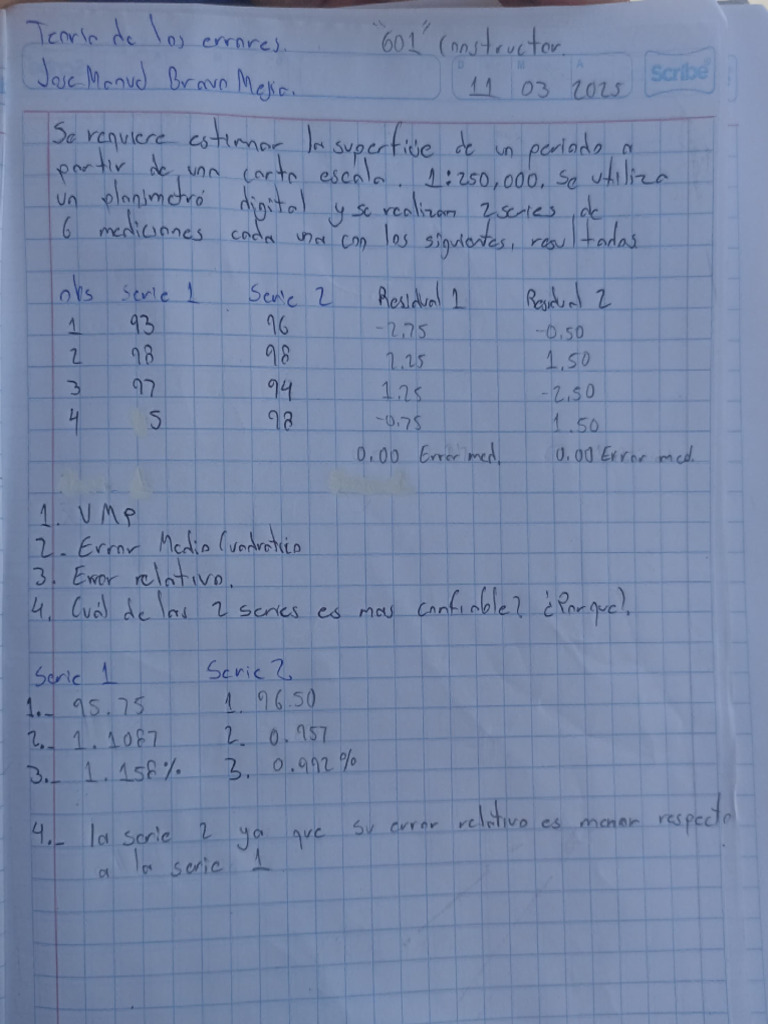 Teoria de los errores. "601" Constructor.
Jose Manuel Bravo Mejia. D M A Scribe
11 03 2025
Se requiere estimar la superficie de un periodo a
partir de una carta escala. 1:250,000. Se utiliza
un planimetro digital y se realizan 2 series de
6 mediciones cada una con los siguientes, resultados
obs Serie 1 Serie 2 Residual 1 Residual 2
1 93 96 -2.75 -0.50
2 98 98 2.25 1.50
3 97 94 1.25 -2.50
4 5 98 -0.75 1.50
0.00 Error med. 0.00 Error med.
1. VMP
2. Error Medio Cuadratico
3. Error relativo.
4. Cuál de las 2 series es mas confiable? ¿Porque?.
Serie 1 Serie 2
1.- 95.75 1. 96.50
2.- 1.1087 2. 0.957
3.- 1.158% 3. 0.992%
4.- la serie 2 ya que su error relativo es menor respecto
a la serie 1